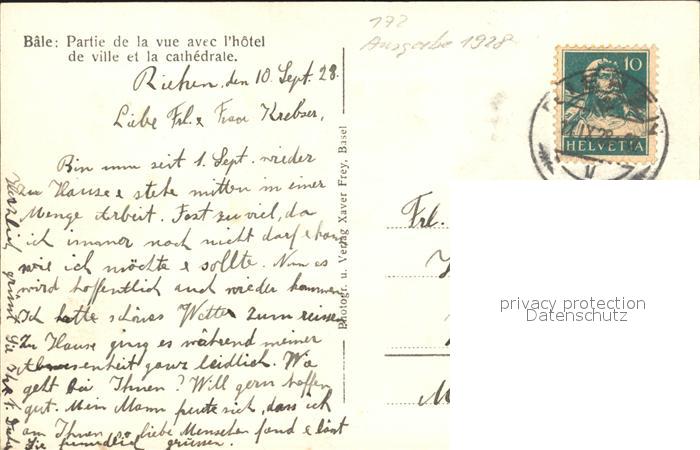 Bâle: Partie de la vue avec l'hôtel
de ville et la cathédrale.
172
Ausgabe 1928
Riehen, den 10. Sept. 28.
Liebe Frl. & Frau Krebser,
Bin nun seit 1. Sept. wieder
zu Hause & stehe mitten in einer
Menge Arbeit. Fast zu viel, da
ich immer noch nicht darf & kann
wie ich möchte & sollte. Nun es
wird hoffentlich auch wieder kommen.
Ich hatte schönes Wetter zum reisen.
Zu Hause ging es während meiner
Abwesenheit ganz leidlich. Wie
geht bei Ihnen? Will gern hoffen
gut. Mein Mann freute sich, dass ich
an Ihnen so liebe Menschen fand & lässt
Sie freundlich grüssen.
Herzlich grüsst Sie
Photogr. u. Verlag Xaver Frey, Basel
10
HELVETIA
Frl.
privacy protection
Datenschutz